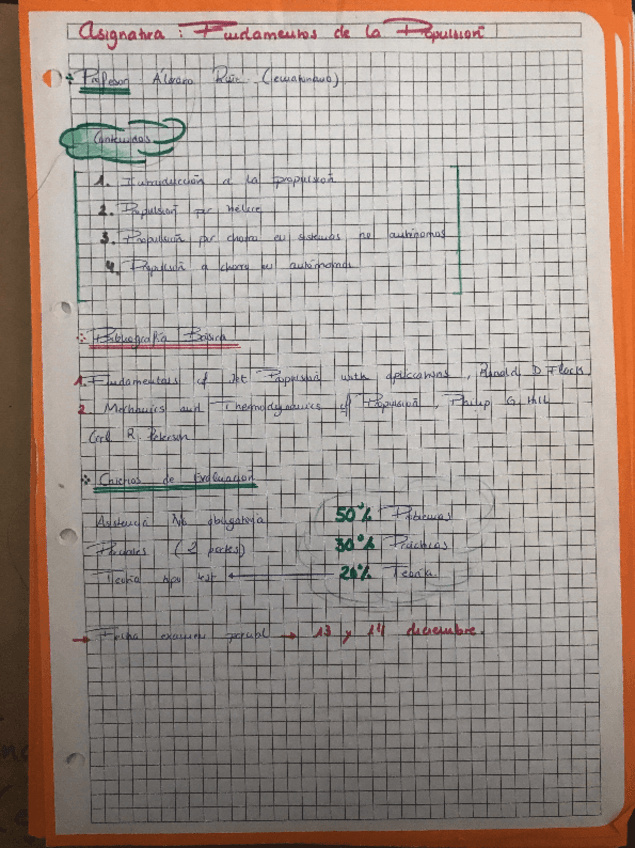 Asignatura : Fundamentos de la Propulsión
Profesor Álvaro (ecuatoriano)
Contenidos
1. Introducción a la propulsión
2. Propulsión por hélice
3. Propulsión por chorro en sistemas no autónomos
4. Propulsión a chorro en autónomos
Bibliografía Básica
1. Fundamentals of Jet Propulsion with applications, Ronald D Flack.
2. Mechanics and Thermodynamics of Propulsion, Philip G. Hill
Carl R. Peterson
Criterios de Evaluación
Asistencia No obligatoria 50% Problemas
(2 partes) 30% Prácticas
Teoría tipo test ← 20% Teoría.
→ Fecha examen parcial → 13 y 14 diciembre.